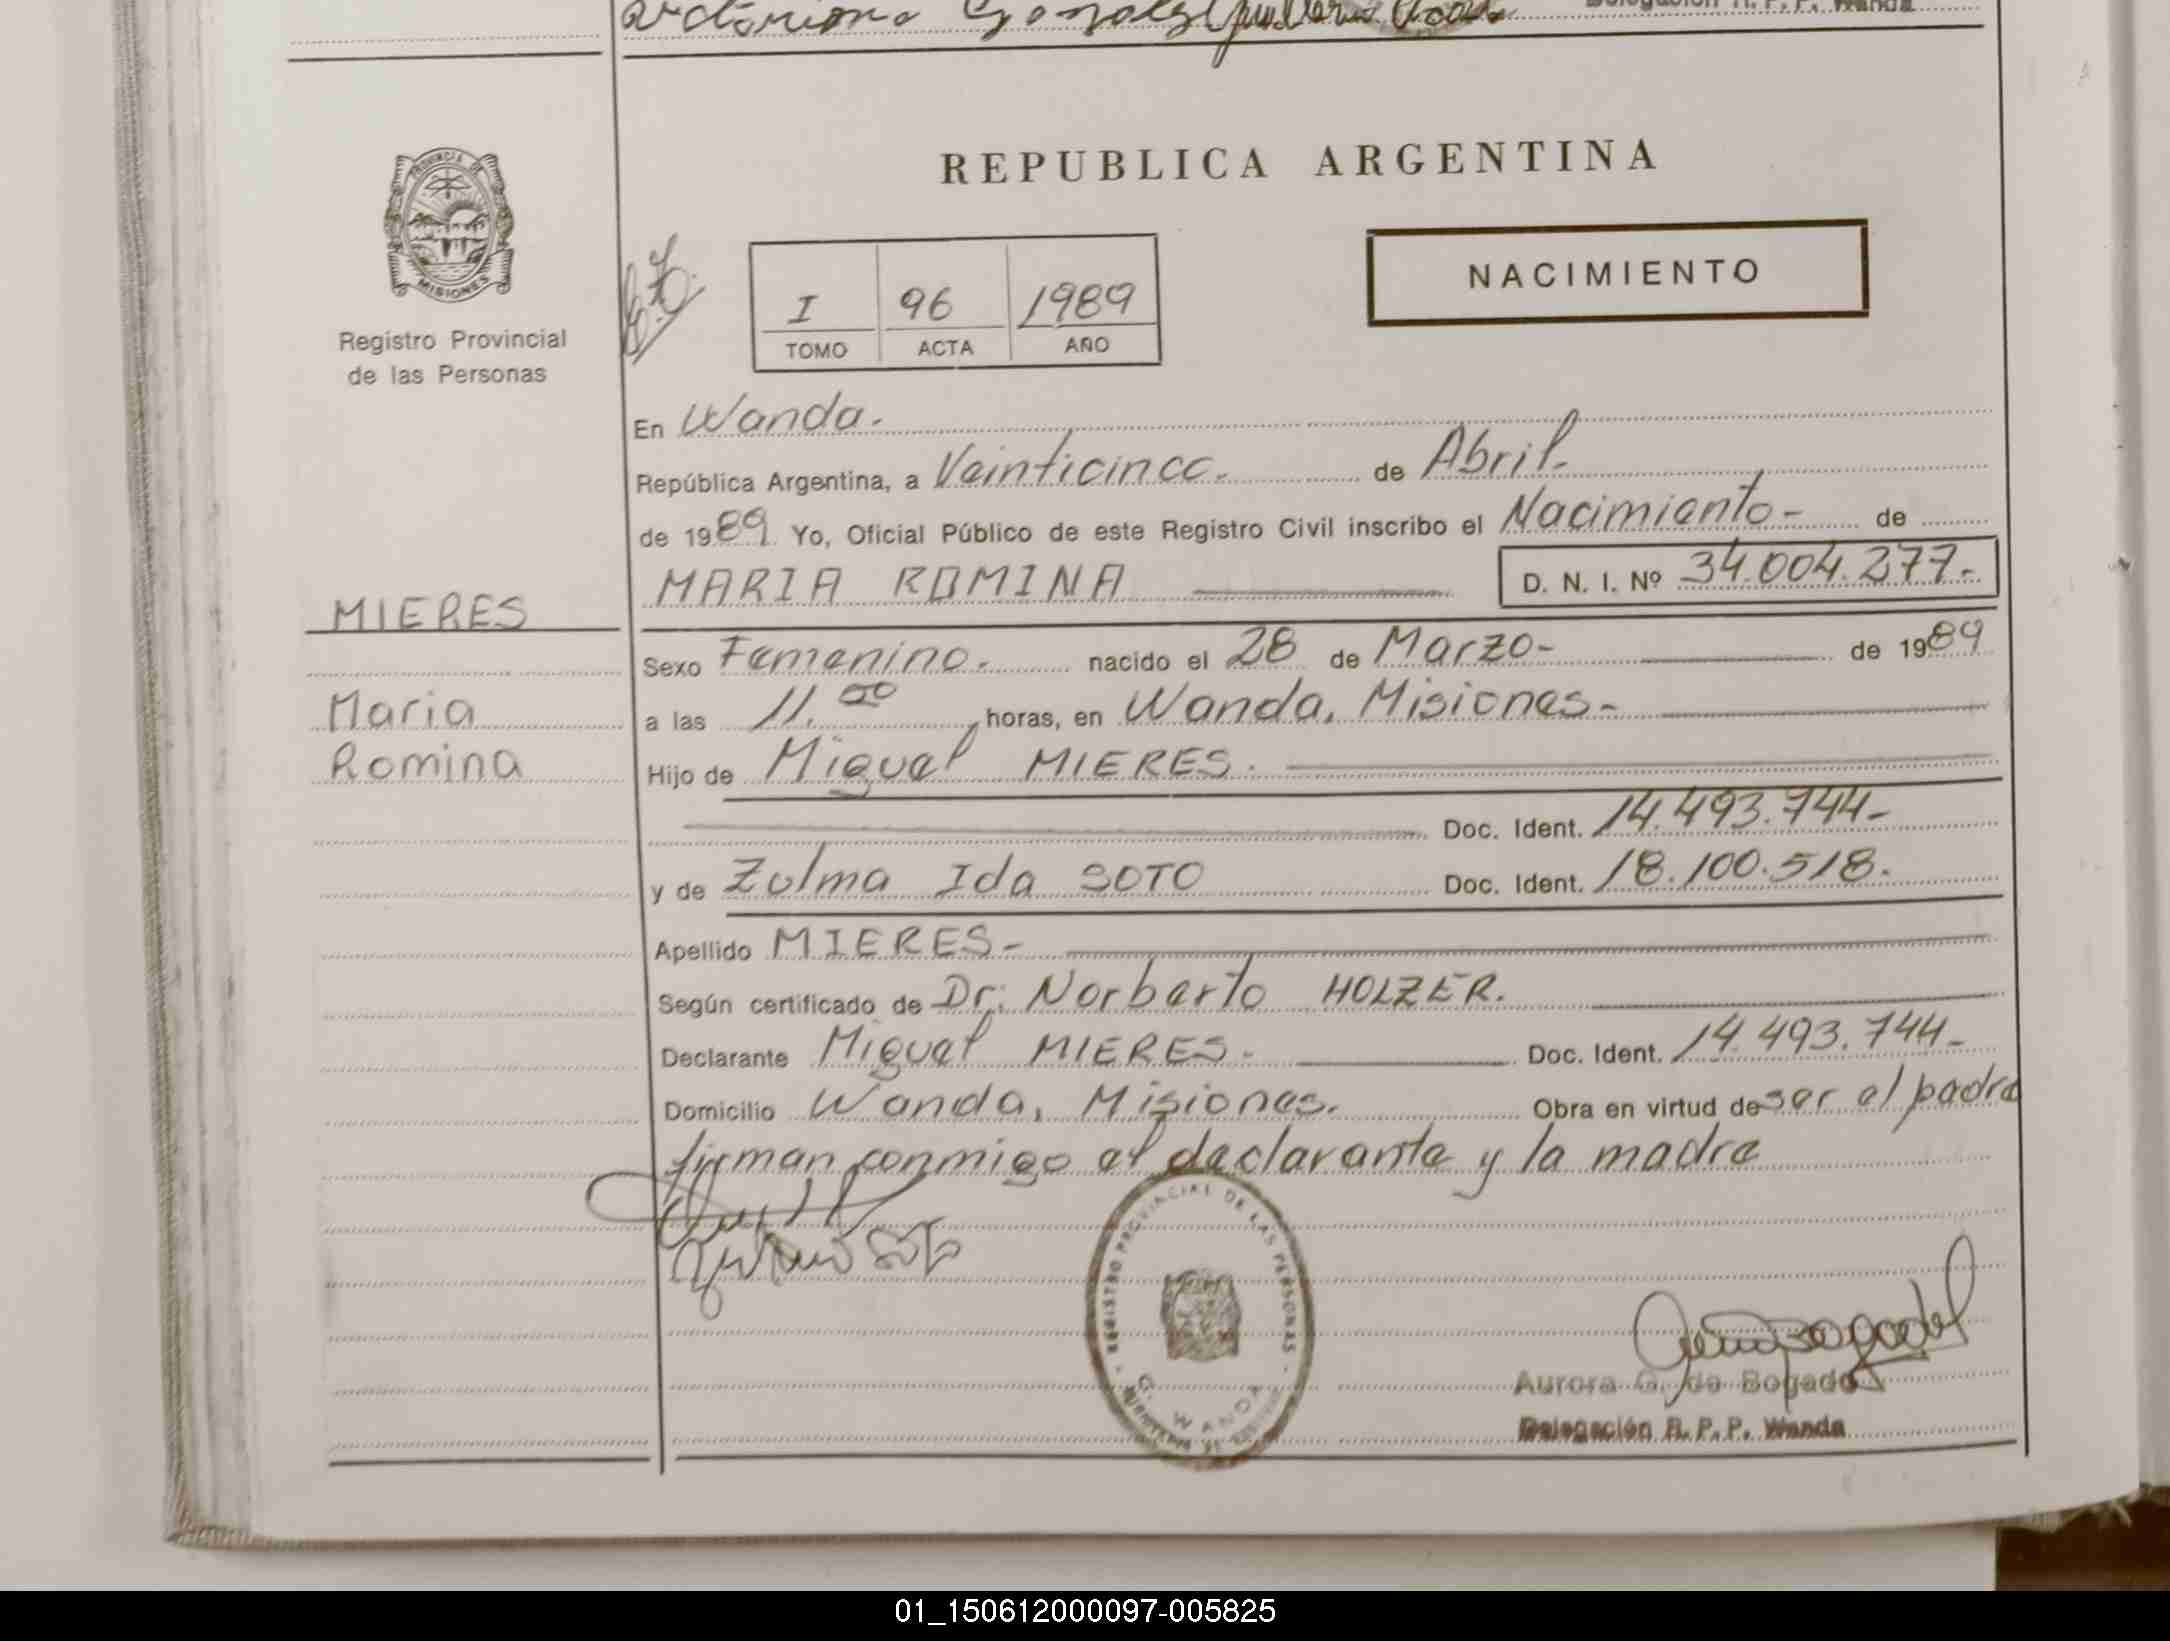 Delegación R. P. P. Wanda
PROVINCIA DE
MISIONES
Registro Provincial
de las Personas
REPUBLICA ARGENTINA
NACIMIENTO
I 96 1989
TOMO ACTA AÑO
En Wanda.
República Argentina, a Veinticinco. de Abril.
de 1989 Yo, Oficial Público de este Registro Civil inscribo el Nacimiento- de
MARIA ROMINA D. N. I. Nº 34.004.277.-
MIERES
Sexo Femenino. nacido el 28 de Marzo- de 1989
Maria
a las 11.00 horas, en Wanda, Misiones-
Romina
Hijo de Miguel MIERES.
Doc. Ident. 14.493.744-
y de Zulma Ida SOTO Doc. Ident. 18.100.518.
Apellido MIERES-
Según certificado de Dr. Norberto HOLZER.
Declarante Miguel MIERES- Doc. Ident. 14.493.744-
Domicilio Wanda, Misiones. Obra en virtud de ser el padre
firman conmigo el declarante y la madre
REGISTRO PROVINCIAL DE LAS PERSONAS
WANDA
Aurora G. de Bogado
Delegación R. P. P. Wanda
01_150612000097-005825